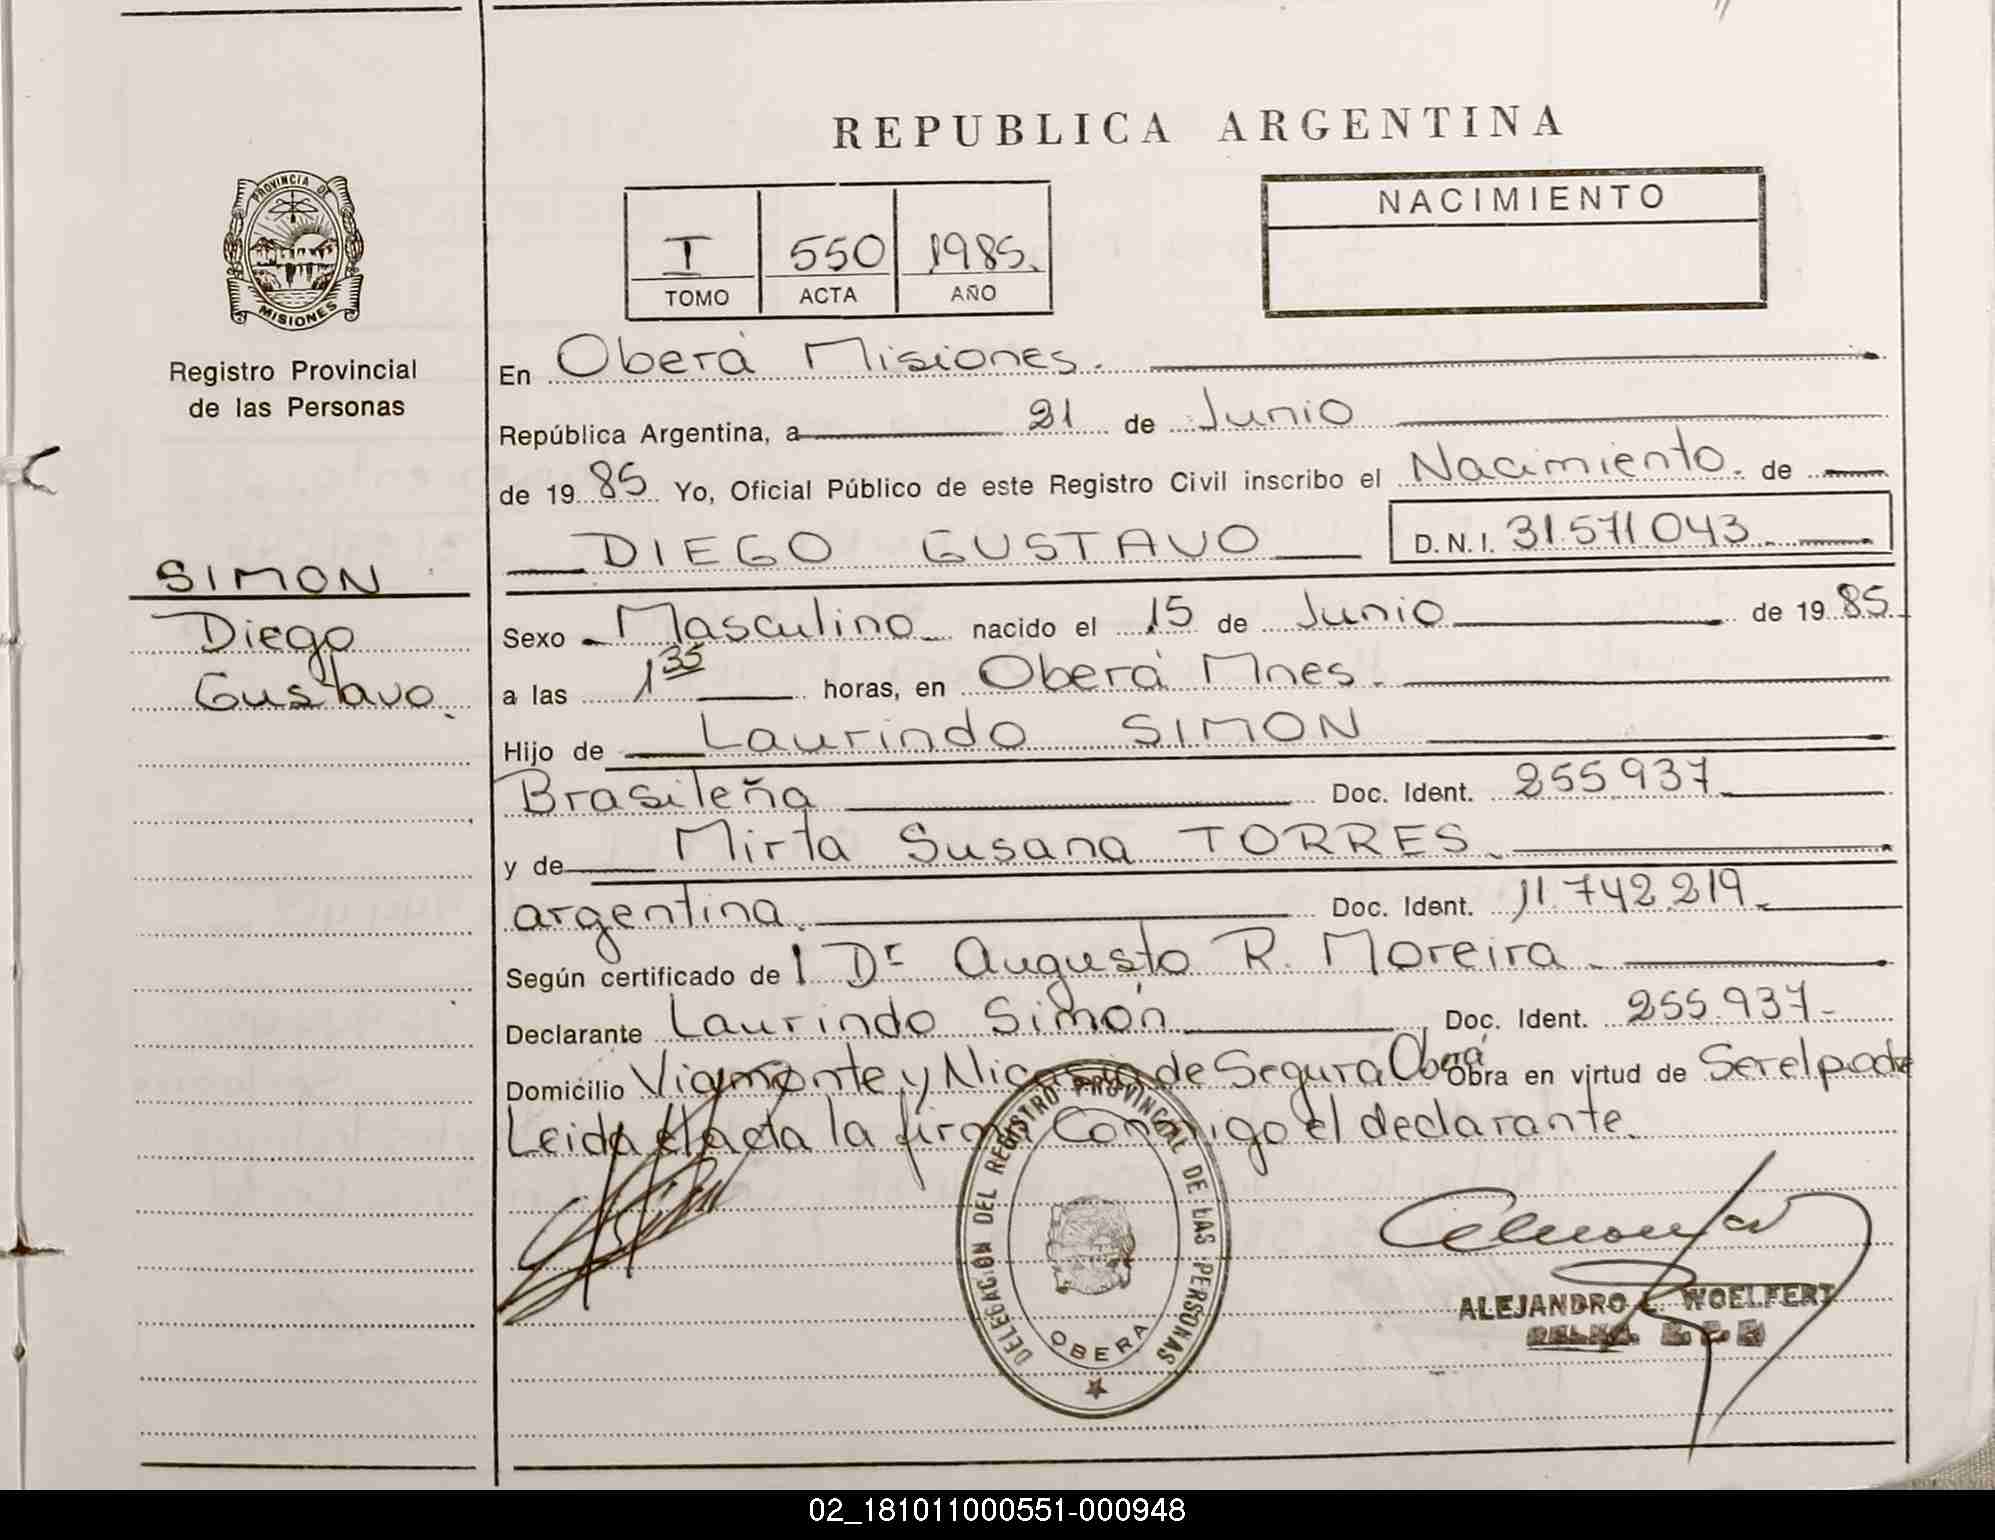 REPUBLICA ARGENTINA
PROVINCIA DE
MISIONES
Registro Provincial
de las Personas
SIMON
Diego
Gustavo.
I 550 1985.
TOMO ACTA AÑO
NACIMIENTO
En Oberá Misiones.
República Argentina, a 21 de Junio
de 1985 Yo, Oficial Público de este Registro Civil inscribo el Nacimiento. de
DIEGO GUSTAVO D.N.I. 31.571.043
Sexo Masculino nacido el 15 de Junio de 1985.
a las 1 35 horas, en Oberá Mnes.
Hijo de Laurindo SIMON
Brasileña Doc. Ident. 255.937
y de Mirta Susana TORRES.
argentina. Doc. Ident. 11.742.219.
Según certificado de l Dr Augusto R. Moreira
Declarante Laurindo Simón Doc. Ident. 255.937-
Domicilio Viamonte y Nicasia de Segura Oberá Obra en virtud de Ser el padre
Leida el acta la firma Conmigo el declarante.
DELEGACION DEL REGISTRO PROVINCIAL DE LAS PERSONAS
OBERA
ALEJANDRO WOELFERT
02_181011000551-000948